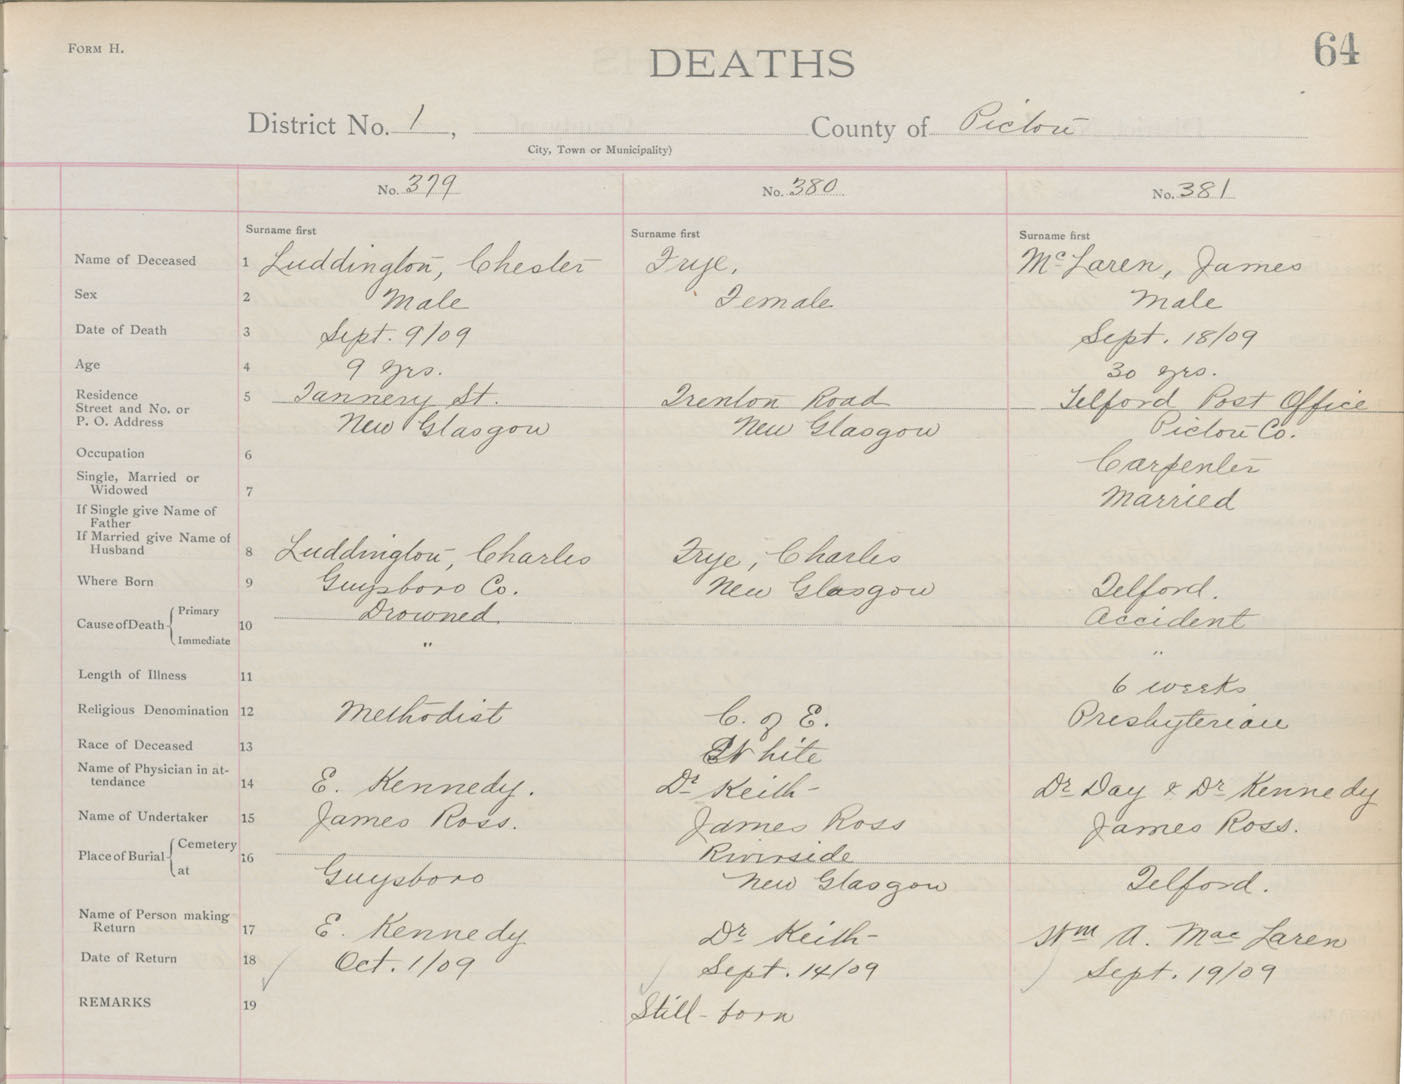 FORM H.
64
DEATHS
District No. 1, County of Pictou
City, Town or Municipality)
No. 379 No. 380 No. 381
Surname first Surname first Surname first
Name of Deceased 1 Luddington, Chester Frye, McLaren, James
Sex 2 Male Female Male
Date of Death 3 Sept. 9/09 Sept. 18/09
Age 4 9 yrs. 30 yrs.
Residence
Street and No. or 5 Tannery St. Trenton Road Telford Post Office
P. O. Address New Glasgow New Glasgow Pictou Co.
Occupation 6 Carpenter
Single, Married or
Widowed 7 Married
If Single give Name of
Father
If Married give Name of
Husband 8 Luddington, Charles Frye, Charles
Where Born 9 Guysboro Co. New Glasgow Telford.
Cause of Death Primary 10 Drowned Accident
Immediate " "
Length of Illness 11 6 weeks
Religious Denomination 12 Methodist C. of E. Presbyterian
Race of Deceased 13 White
Name of Physician in at-
tendance 14 E. Kennedy. Dr Keith Dr Day & Dr Kennedy
Name of Undertaker 15 James Ross. James Ross James Ross.
Place of Burial Cemetery 16 Riverside
at Guysboro New Glasgow Telford.
Name of Person making
Return 17 E. Kennedy Dr Keith Wm A. Mac Laren
Date of Return 18 Oct. 1/09 Sept. 14/09 Sept. 19/09
REMARKS 19 Still-born